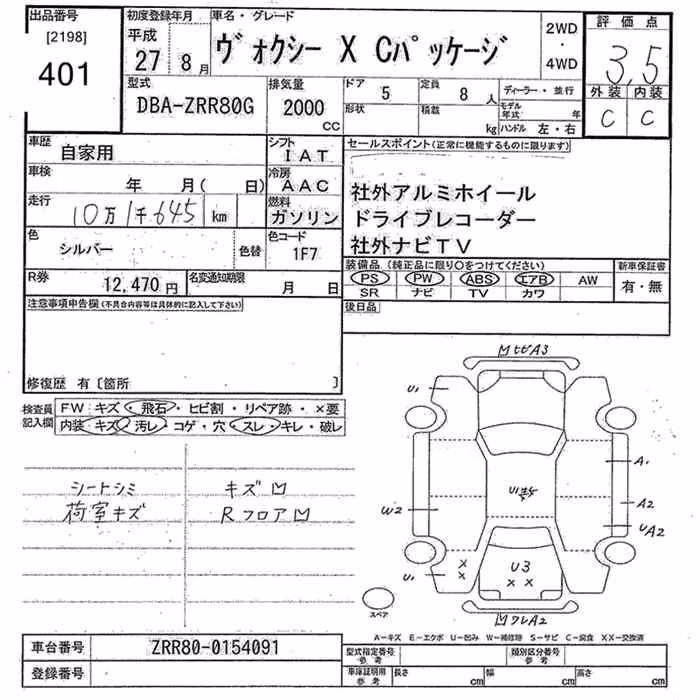 出品番号 初度登録年月 車名・グレード 評価点
[2198] 平成 2WD
401 27 8月 ヴォクシー X Cパッケージ ・ 3.5
4WD
型式 排気量 ドア 5 定員 8 人 ディーラー・並行 外装 内装
DBA-ZRR80G 2000 cc 形状 積載 kg モデル年式 年 C C
ハンドル 左・右
車歴 自家用 シフト IAT セールスポイント(正常に機能するものに限ります)
車検 年 月( 日) 冷房 AAC 社外アルミホイール
走行 10万1千645 km 燃料 ガソリン ドライブレコーダー
色 シルバー 色替 色コード 1F7 社外ナビTV
R券 12,470円 名変通知期限 月 日 装備品(純正品に限り○をつけてください) 新車保証書
PS PW ABS エアB AW 有・無
SR ナビ TV カワ
注意事項申告欄(不具合内容等は具体的に記入して下さい) 後日品
修復歴 有〔箇所 〕
検査員 FW キズ・飛石・ヒビ割・リペア跡・×要
記入欄 内装 キズ・汚レ・コゲ・穴・スレ・キレ・破レ
ヒビA3
U1
A1
シートシミ キズ
荷室キズ Rフロア
W2 A2
UA2
× ×
U1 U3
× ×
スペア ワレA2
A-キズ E-エクボ U-凹み W-補修跡 S-サビ C-腐食 XX-交換済
車台番号 ZRR80-0154091 型式指定番号 参考 類別区分番号 参考
登録番号 車庫証明用 参考 長さ cm 幅 cm 高さ cm